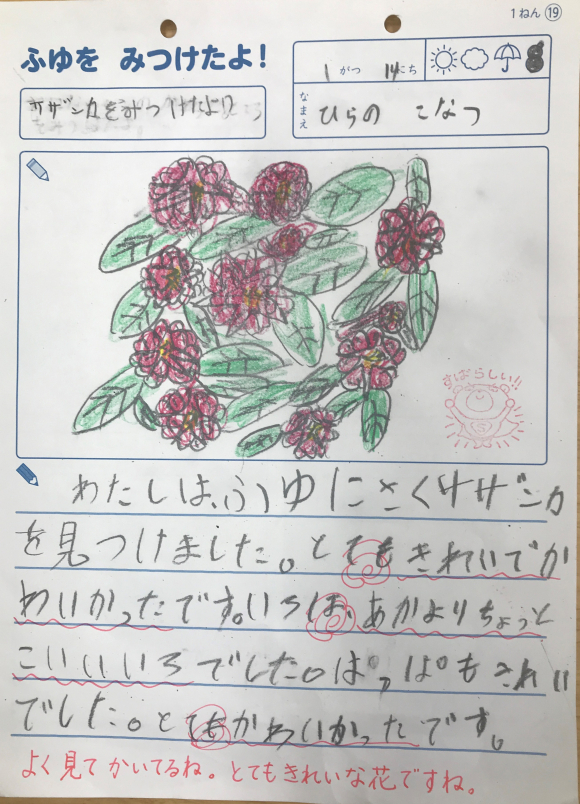 1ねん ⑲
ふゆを みつけたよ!
1がつ 14にち
サザンカをみつけたよ
なまえ ひらの こなつ
すばらしい!!
わたしは、ふゆにさくサザンカ
を見つけました。とてもきれいでか
わいかったです。いろは、あかよりちょっと
こいいいろでした。はっぱもきれい
でした。とてもかわいかったです。
よく見てかいてるね。とてもきれいな花ですね。